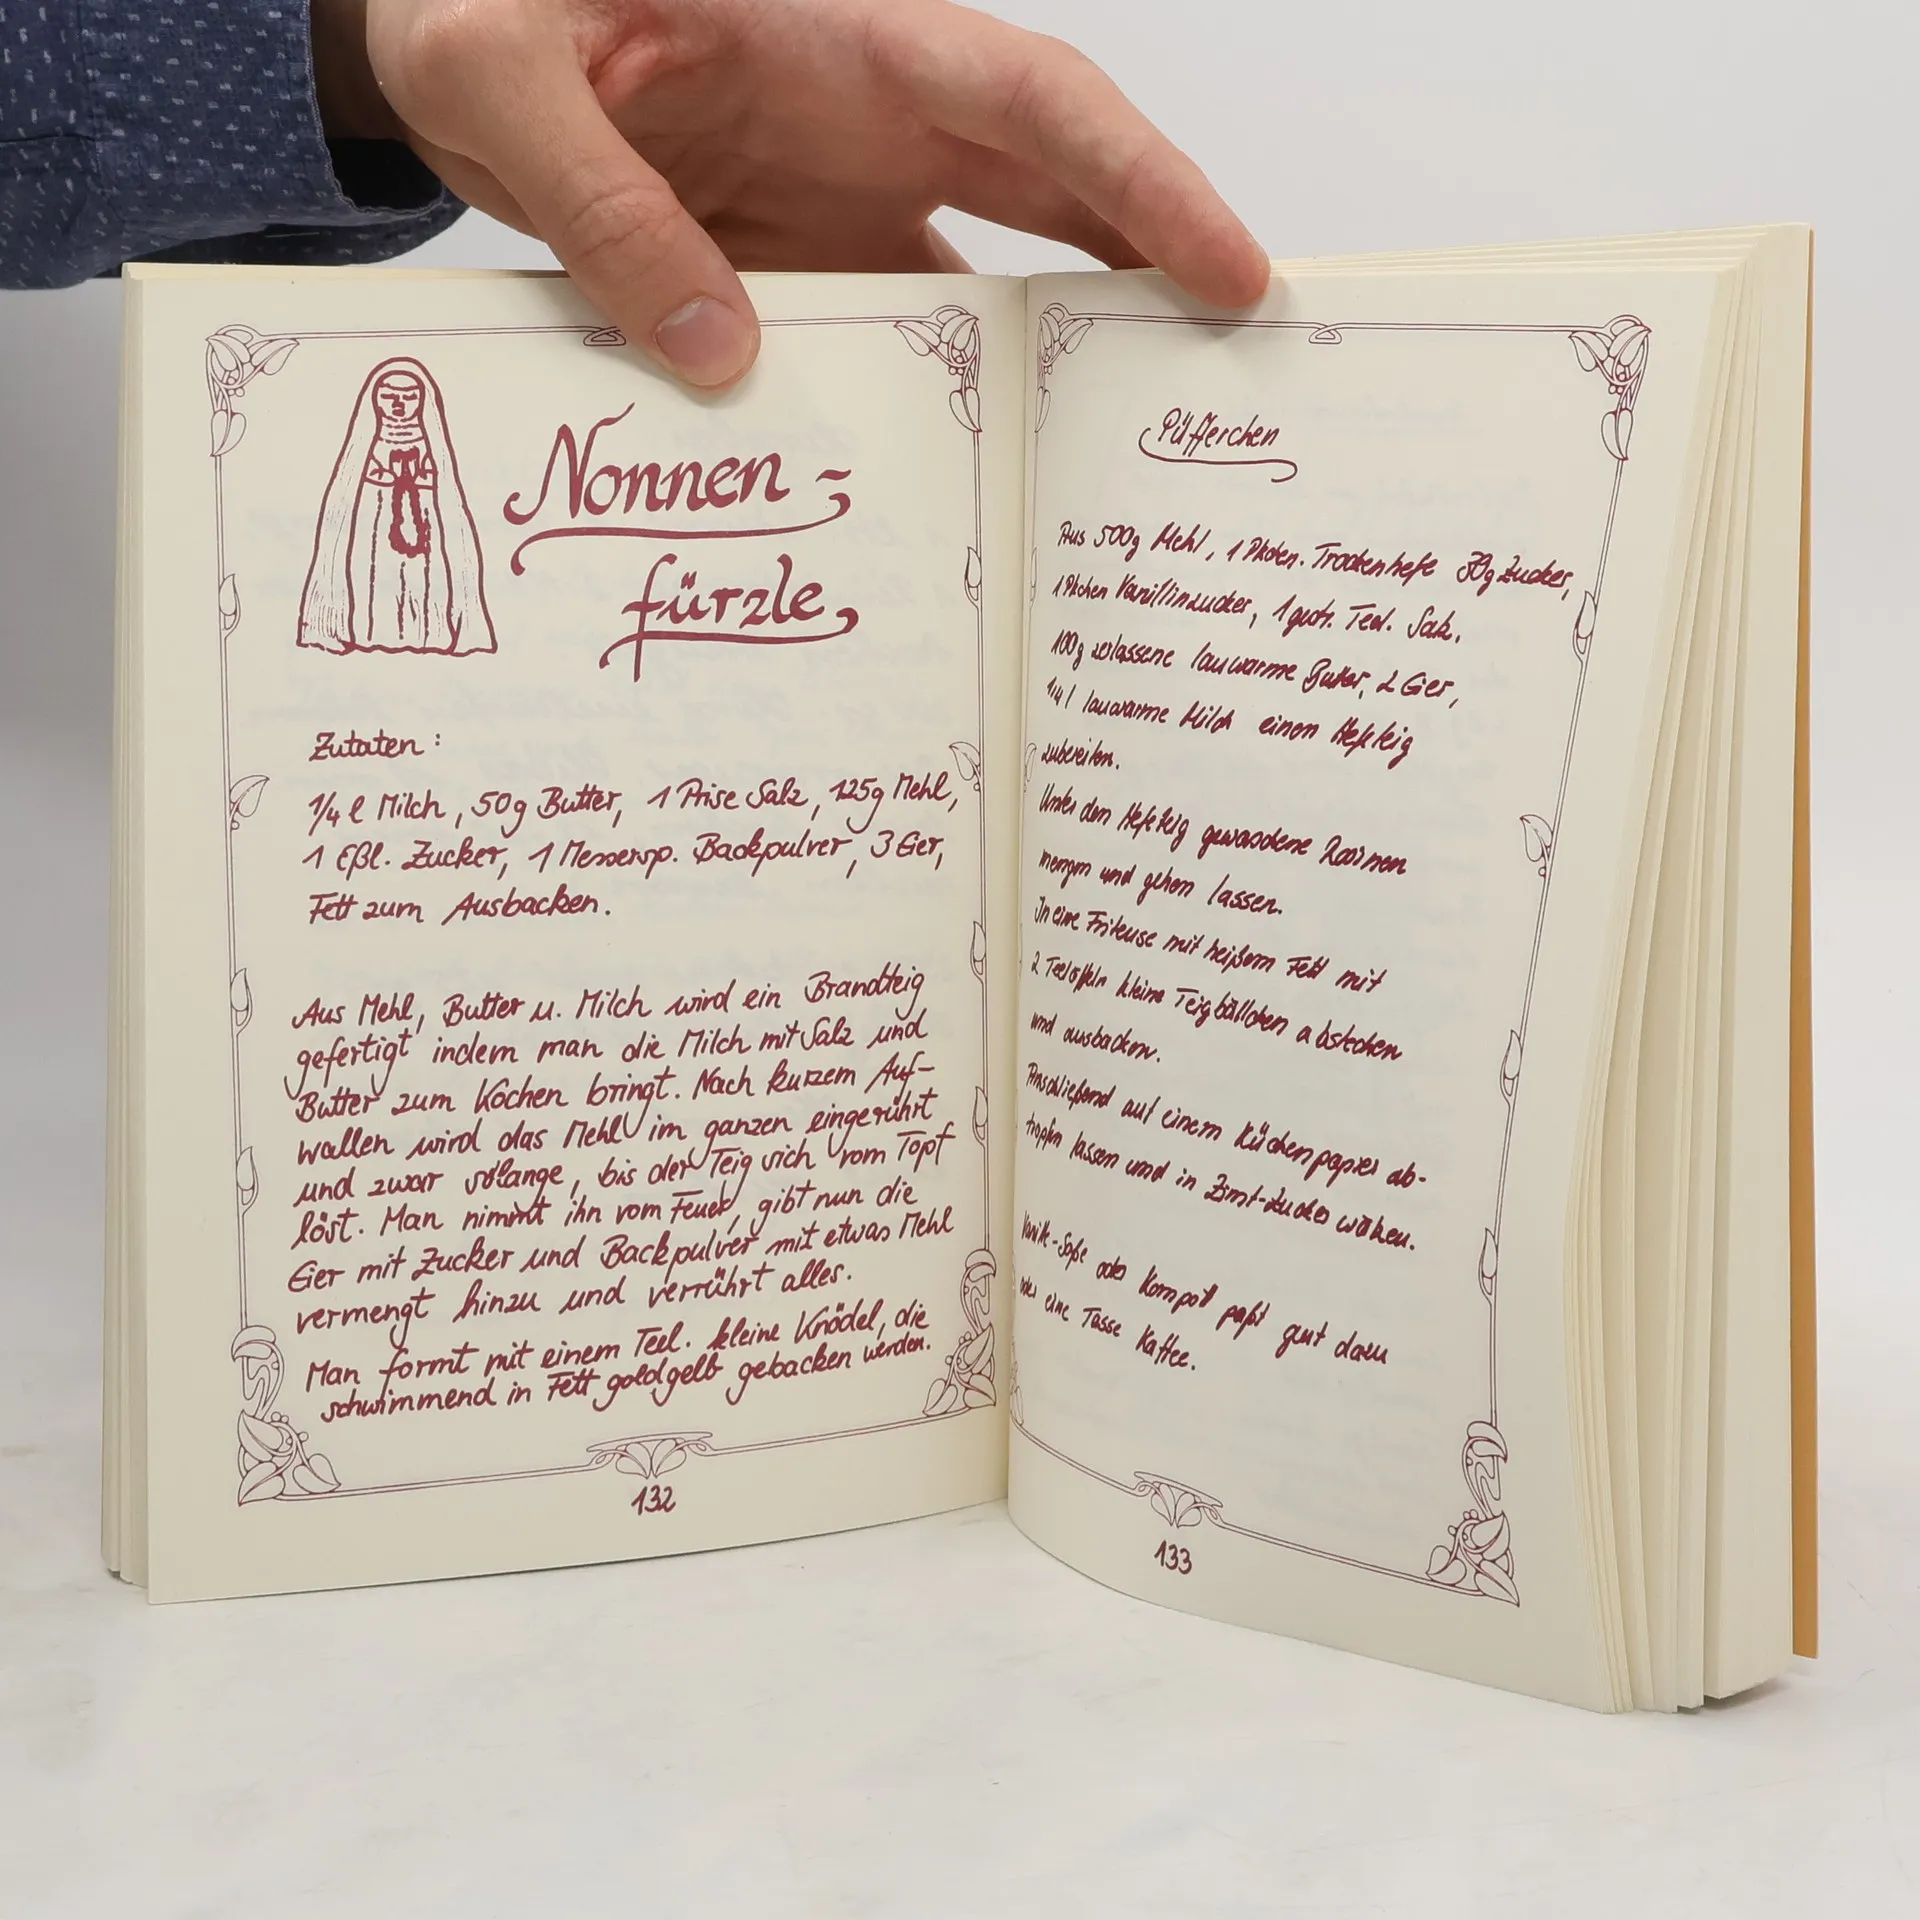 Nonnen-
fürzle
Zutaten:
1/4 l Milch, 50g Butter, 1 Prise Salz, 125g Mehl,
1 Eßl. Zucker, 1 Messersp. Backpulver, 3 Eier,
Fett zum Ausbacken.
Aus Mehl, Butter u. Milch wird ein Brandteig
gefertigt indem man die Milch mit Salz und
Butter zum Kochen bringt. Nach kurzem Auf-
wallen wird das Mehl im ganzen eingerührt
und zwar solange, bis der Teig sich vom Topf
löst. Man nimmt ihn vom Feuer, gibt nun die
Eier mit Zucker und Backpulver mit etwas Mehl
vermengt hinzu und verrührt alles.
Man formt mit einem Teel. kleine Knödel, die
schwimmend in Fett goldgelb gebacken werden.
132
Püfferchen
Aus 500g Mehl, 1 Pkchen. Trockenhefe Zucker,
1 Pkchen Vanillinzucker, 1 gestr. Teel. Salz.
100g zerlassene lauwarme Butter, 2 Eier,
1/4 l lauwarme Milch einen Hefeteig
zubereiten.
Unter den Hefeteig gewaschene Rosinen
mengen und gehen lassen.
In eine Friteuse mit heißem Fett mit
2 Teelöffeln kleine Teigbällchen abstechen
und ausbacken.
Anschließend auf einem Küchenpapier ab-
tropfen lassen und in Zimt-Zucker wälzen.
Vanille-Soße oder Kompott paßt gut dazu
oder eine Tasse Kaffee.
133